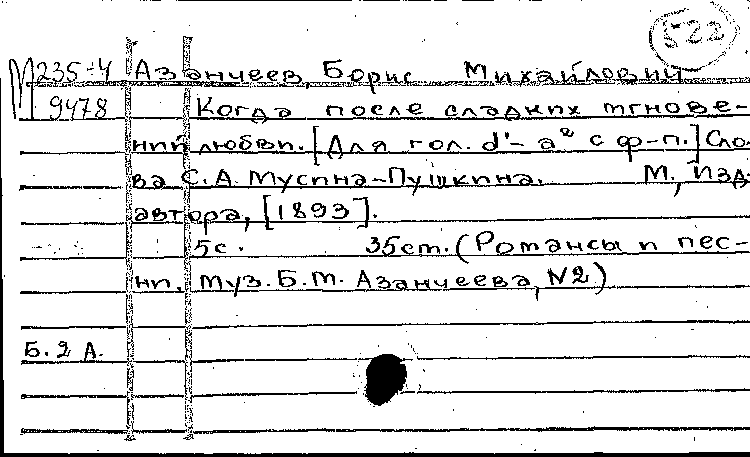 522
М 235-4 Азанчеев, Борис Михайлович
9478 Когда после сладких мгнове-
ний любви. [Для гол. d¹-a² с ф-п.] Сло-
ва С.А. Мусина-Пушкина. М., Изд.
автора, [1893].
5с. 35см. (Романсы и пес-
ни, муз. Б.М. Азанчеева, N2)
Б. 2 А.